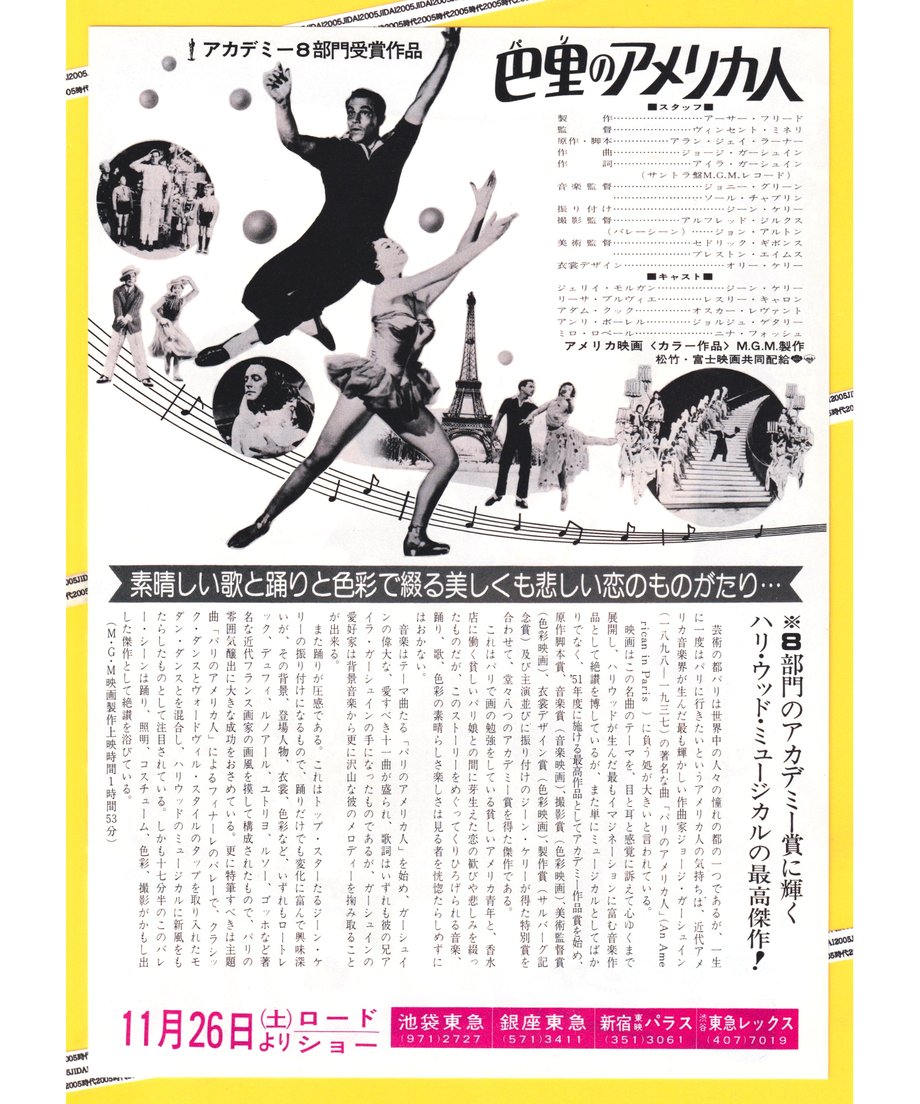 アカデミー8部門受賞作品
巴里のアメリカ人
パリ
■スタッフ■
製作……………………アーサー・フリード
監督……………………ヴィンセント・ミネリ
原作・脚本……………アラン・ジェイ・ラーナー
作曲……………………ジョージ・ガーシュイン
作詞……………………アイラ・ガーシュイン
(サントラ盤M.G.M.レコード)
音楽監督………………ジョニー・グリーン
………………ソール・チャプリン
振り付け………………ジーン・ケリー
撮影監督………………アルフレッド・ジルクス
(バレーシーン)……ジョン・アルトン
美術監督………………セドリック・ギボンス
………………プレストン・エイムス
衣裳デザイン…………オリー・ケリー
■キャスト■
ジェリイ・モルガン……………ジーン・ケリー
リーサ・ブルヴィエ……………レスリー・キャロン
アダム・クック…………………オスカー・レヴァント
アンリ・ボーレル………………ジョルジュ・ゲタリー
ミロ・ロベール…………………ニナ・フォッシュ
アメリカ映画〈カラー作品〉M.G.M.製作
松竹・富士映画共同配給
素晴しい歌と踊りと色彩で綴る美しくも悲しい恋のものがたり…
※8部門のアカデミー賞に輝く
ハリウッド・ミュージカルの最高傑作!
芸術の都パリは世界中の人々の憧れの都の一つであるが、一生
に一度はパリに行きたいというアメリカ人の気持ちは、近代アメ
リカ音楽界が生んだ最も輝かしい作曲家ジョージ・ガーシュイン
(一八九八—一九三七)の著名な曲「パリのアメリカ人」(An Ame
rican in Paris)に負う処が大きいと言われている。
映画はこの名曲のテーマを、目と耳と感覚に訴えて心ゆくまで
展開し、ハリウッドが生んだ最もイマジネーションに富む音楽作
品として絶讃を博しているが、また単にミュージカルとしてばか
りでなく、'51年度に於ける最高作品としてアカデミー作品賞を始め、
原作脚本賞、音楽賞(音楽映画)、撮影賞(色彩映画)、美術監督賞
(色彩映画)、衣裳デザイン賞(色彩映画)、製作賞(サルバーグ記
念賞)及び主演並びに振り付けのジーン・ケリーが得た特別賞を
合わせて、堂々八つのアカデミー賞を得た傑作である。
これはパリで画の勉強をしている貧しいアメリカ青年と、香水
店に働く貧しいパリ娘との間に芽生えた恋の歓びや悲しみを綴っ
たものだが、このストーリーをめぐってくりひろげられる音楽、
踊り、歌、色彩の素晴らしさ楽しさは見る者を恍惚たらしめずに
はおかない。
音楽はテーマ曲たる「パリのアメリカ人」を始め、ガーシュイ
ンの偉大な、愛すべき十一曲が盛られ、歌詞はいずれも彼の兄ア
イラ・ガーシュインの手になったものであるが、ガーシュインの
愛好家は背景音楽から更に沢山な彼のメロディーを掬み取ること
が出来る。
また踊りが圧感である。これはトップ・スターたるジーン・ケ
リーの振り付けになるもので、踊りだけでも変化に富んで興味深
いが、その背景、登場人物、衣裳、色彩など、いずれもロートレ
ック、デュフィ、ルノアール、ユトリヨ、ルソー、ゴッホなど著
名な近代フランス画家の画風を摸して構成されたもので、パリの
雰囲気醸出に大きな成功をおさめている。更に特筆すべきは主題
曲「パリのアメリカ人」によるフィナーレのバレーで、クラシッ
ク・ダンスとヴォードヴィル・スタイルのタップを取り入れたモ
ダン・ダンスとを混合し、ハリウッドのミュージカルに新風をも
たらしたものとして注目されている。しかも十七分半のこのバレ
ー・シーンは踊り、照明、コスチューム、色彩、撮影がかもし出
した傑作として絶讃を浴びている。
(M・G・M映画製作上映時間1時間53分)
11月26日(土)より ロードショー
池袋東急
(971)2727
銀座東急
(571)3411
新宿東映パラス
(351)3061
渋谷東急レックス
(407)7019